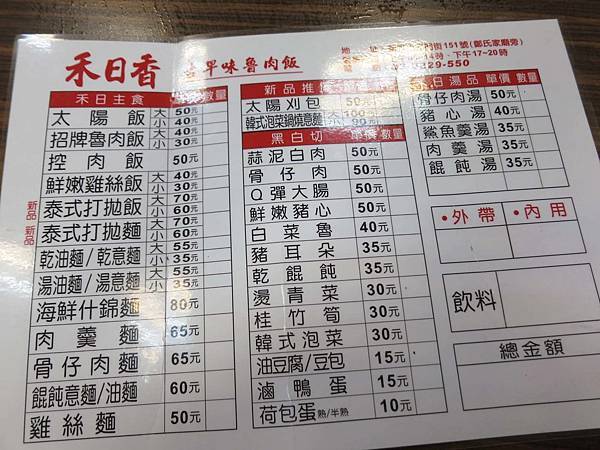 禾日香 古早味魯肉飯
街151號(鄭氏家廟旁)
14時、下午17~20時
329-550
禾日主食 單價 數量
太陽飯 大 50元
小 40元
招牌魯肉飯 大 40元
小 30元
控肉飯 50元
鮮嫩雞絲飯 大 40元
小 30元
新品 泰式打拋飯 大 70元
小 60元
新品 泰式打拋麵 大 70元
小 60元
乾油麵/乾意麵 大 55元
小 35元
湯油麵/湯意麵 大 55元
小 35元
海鮮什錦麵 80元
肉羹麵 65元
骨仔肉麵 65元
餛飩意麵/油麵 60元
雞絲麵 50元
新品推 單價 數量
太陽刈包 50元
韓式泡菜鍋燒意麵 大 100元
小 80元
黑白切 單價 數量
蒜泥白肉 50元
骨仔肉 50元
Q彈大腸 50元
鮮嫩豬心 50元
白菜魯 40元
豬耳朵 35元
乾餛飩 35元
燙青菜 30元
桂竹筍 30元
韓式泡菜 30元
油豆腐/豆包 15元
滷鴨蛋 15元
荷包蛋 熟/半熟 10元
日湯品 單價 數量
骨仔肉湯 50元
豬心湯 40元
鯊魚羹湯 35元
肉羹湯 35元
餛飩湯 35元
•外帶 •內用
飲料
總金額